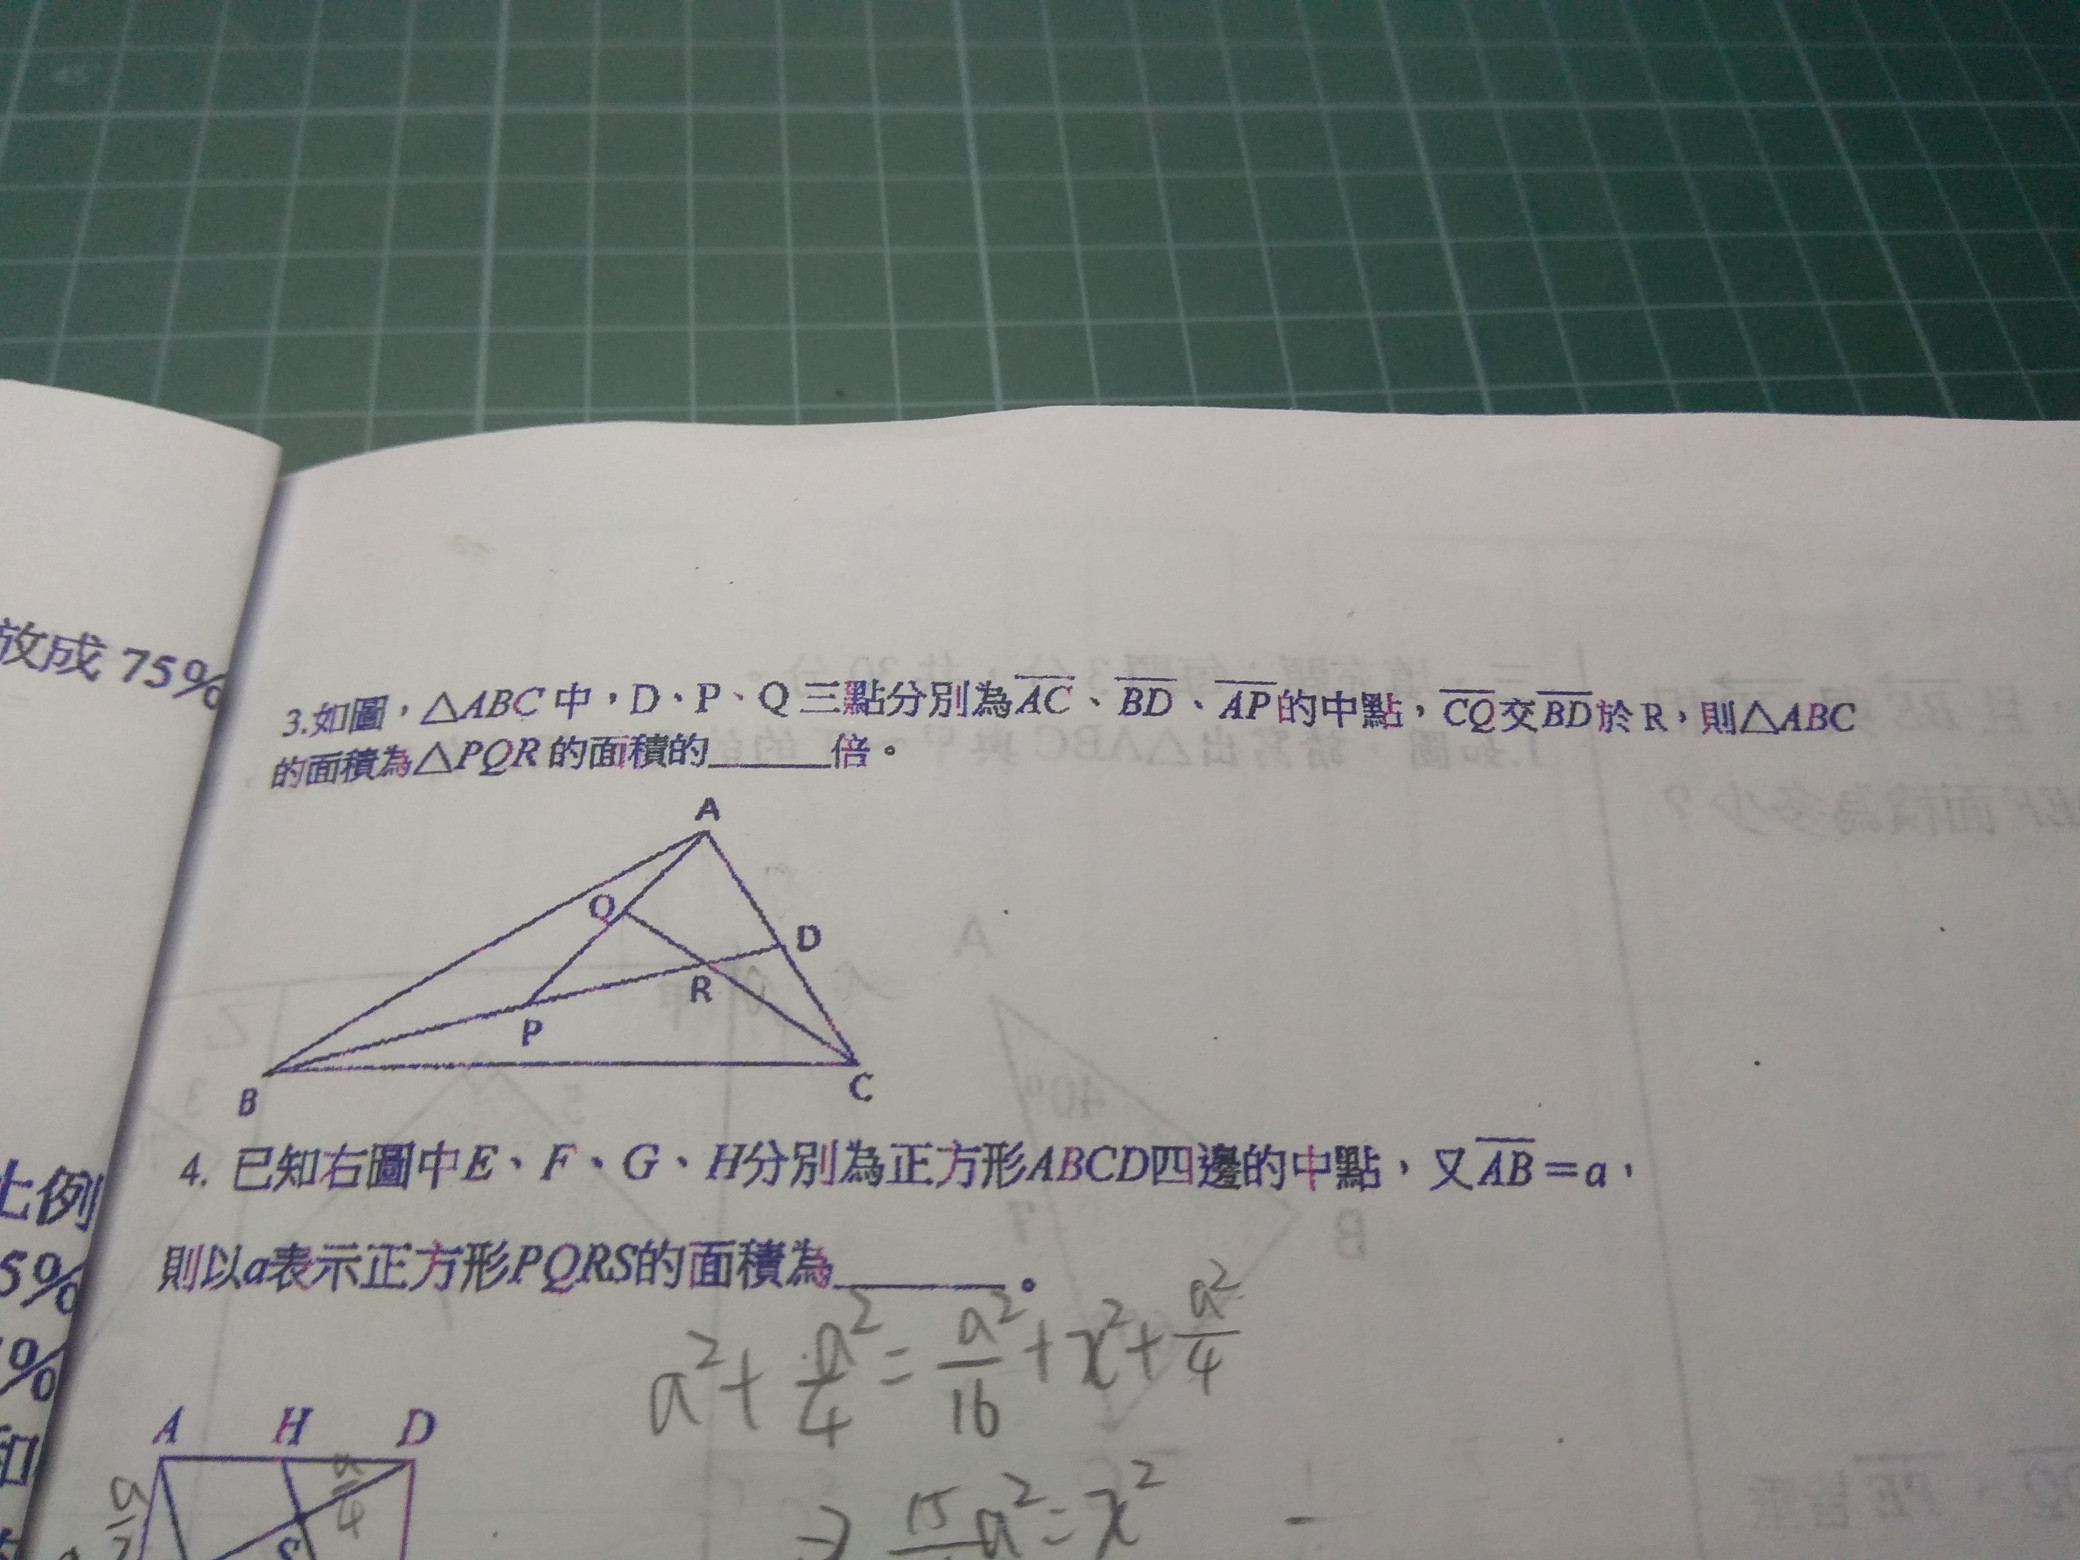 放成 75%
3.如圖，△ABC 中，D、P、Q 三點分別為AC、BD、AP的中點，CQ交BD於 R，則△ABC
的面積為△PQR 的面積的______倍。
A
Q
D
R
P
B
C
4. 已知右圖中E、F、G、H分別為正方形ABCD四邊的中點，又AB=a，
則以a表示正方形PQRS的面積為______。
a²+a²/4=a²/16+x²+a²/4
A H D
a/4
S
比例
5%
%
和